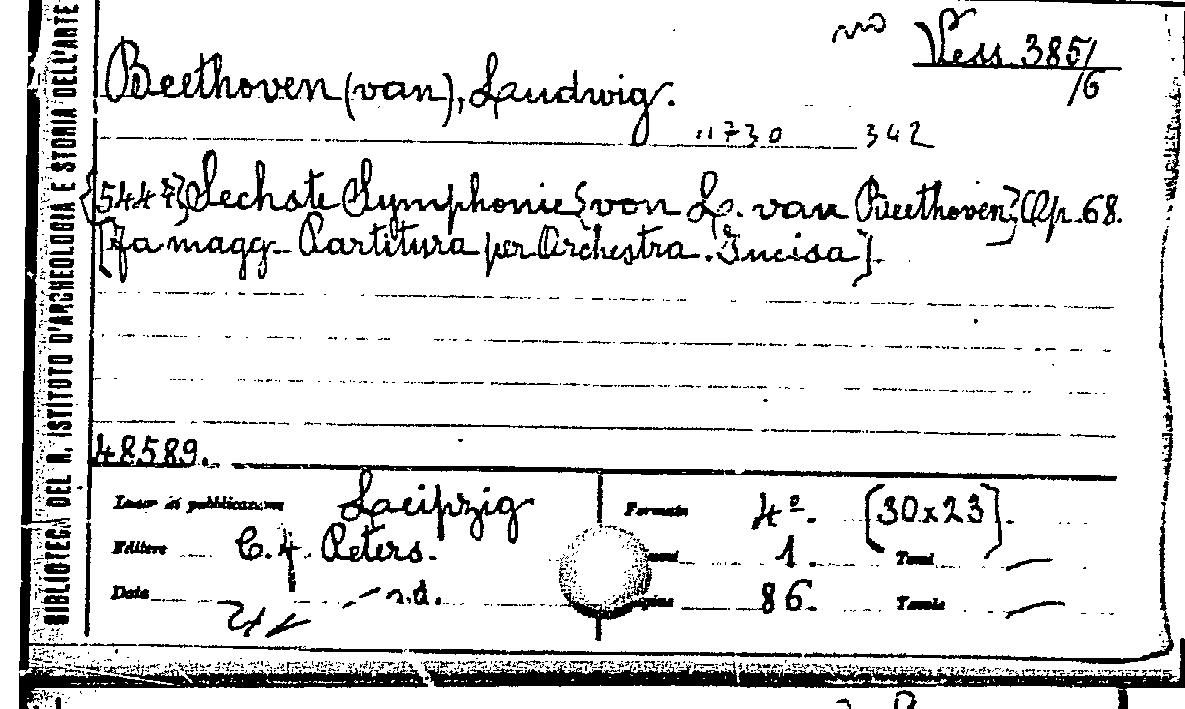 BIBLIOTECA DEL R. ISTITUTO D'ARCHEOLOGIA E STORIA DELL'ARTE
Vess 385/
/6
Beethoven (van), Ludwig.
11730 342
Sechste Symphonie von L. van Beethoven Op. 68.
[Fa magg. Partitura per Orchestra. Incisa].
48589.
Luogo di pubblicazione Leipzig
Formato 4º. [30x23].
Editore C. F. Peters.
1. Tomi —
Data — s.d.
86. Tavole —